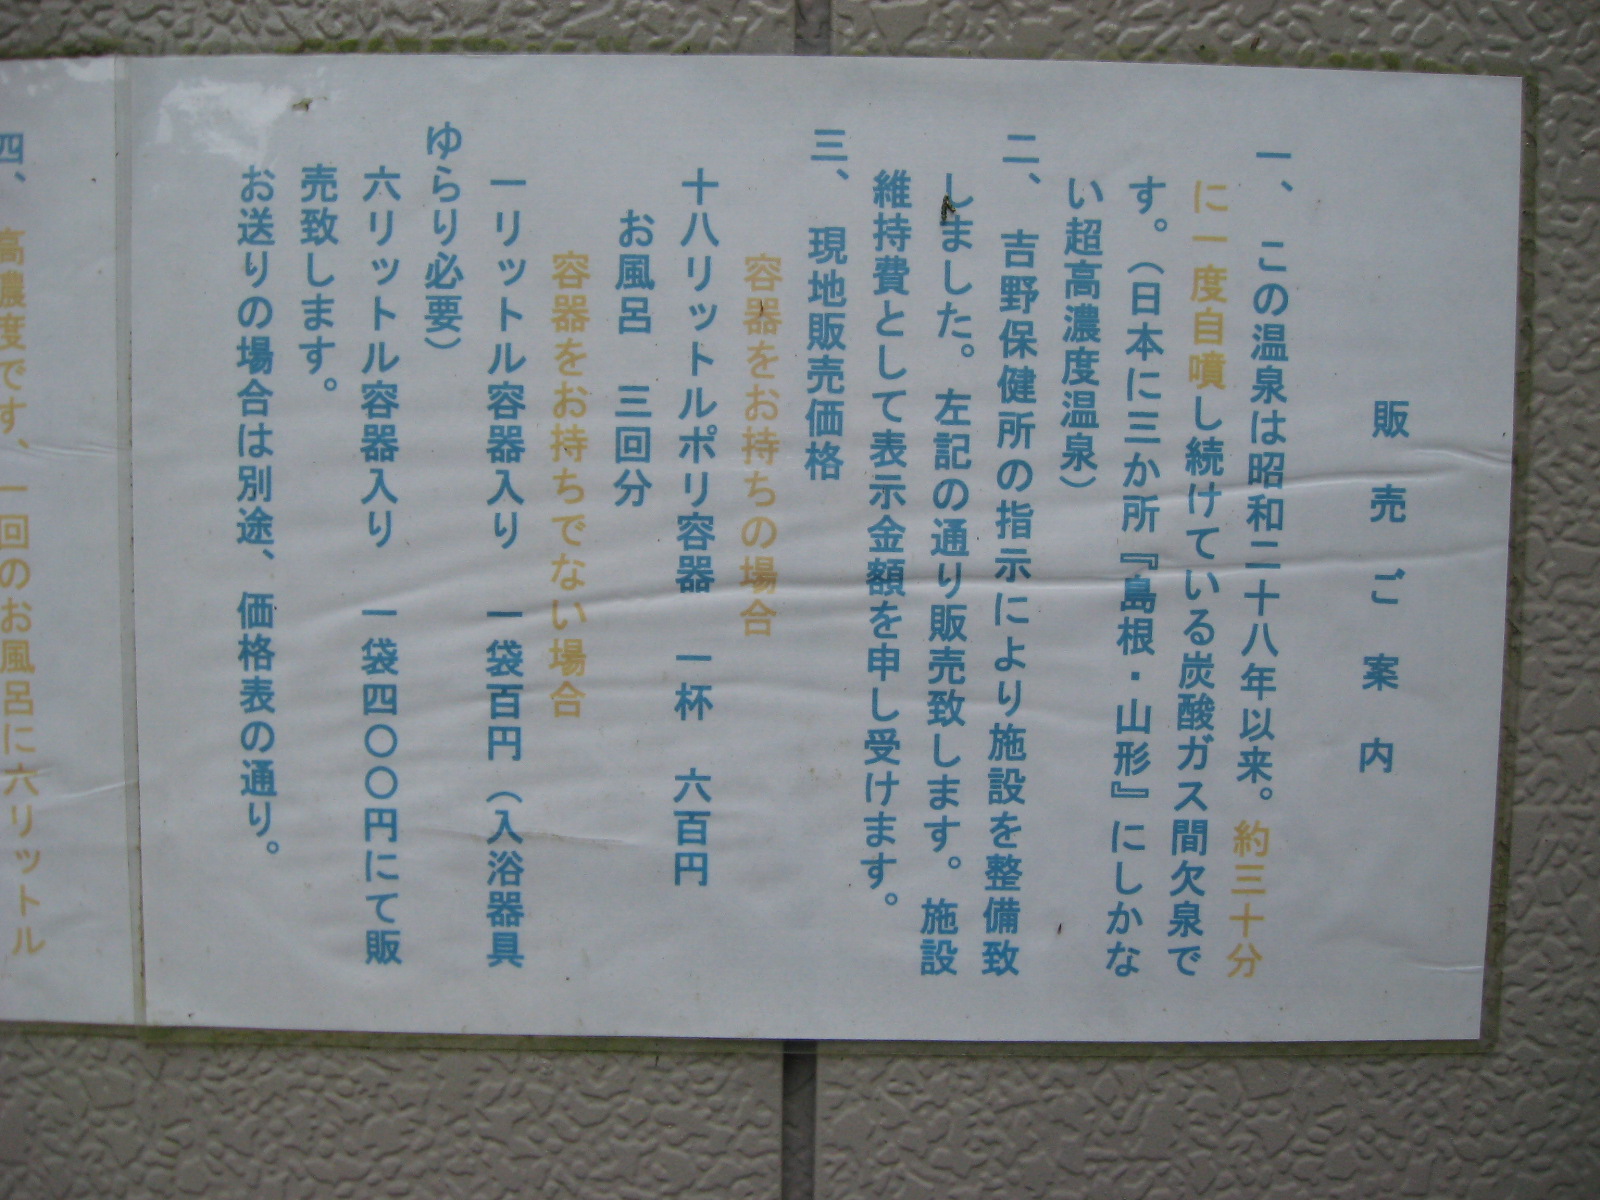 販売ご案内
一、　この温泉は昭和二十八年以来。約三十分
に一度自噴し続けている炭酸ガス間欠泉で
す。（日本に三か所『島根・山形』にしかな
い超高濃度温泉）
二、　吉野保健所の指示により施設を整備致
しました。左記の通り販売致します。施設
維持費として表示金額を申し受けます。
三、　現地販売価格
容器をお持ちの場合
十八リットルポリ容器　一杯　六百円
お風呂　三回分
容器をお持ちでない場合
一リットル容器入り　一袋百円（入浴器具
ゆらり必要）
六リットル容器入り　一袋四〇〇円にて販
売致します。
お送りの場合は別途、価格表の通り。
四、　高濃度です、一回のお風呂に六リットル